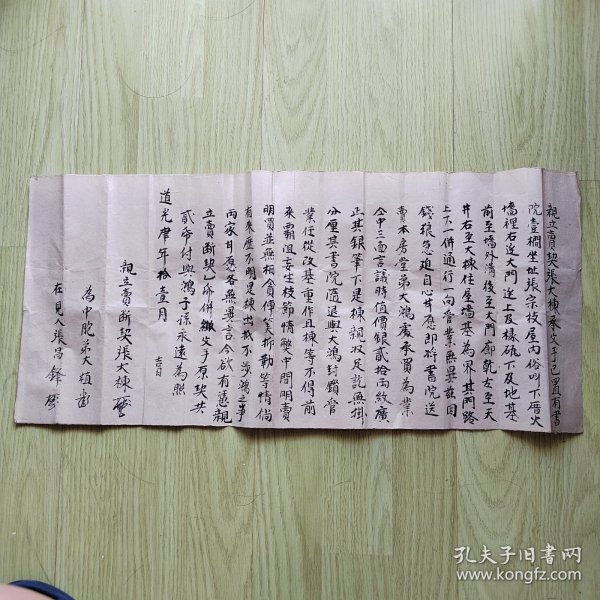 親立賣契張大棟承父手已置有書
院壹櫚坐址張宗枝屋内俗叫下厝火
墻裡右送大門送上及樑砥下及地基
前至墻外溝後至大門廊乾左至天
井右至大棟住屋墻基為界其門路
上下一併通行一向管業無異兹因
錢粮急迫自心甘應即将書院送
賣本房堂弟大鴻處承買為業
仝中三面言議時值價銀貳拾両紋廣
正其銀筆下是棟親收足訖無掛
分厘其書院隨退與大鴻封鎖管
業任從改基重作且棟等不得前
來霸阻妄生枝節情弊中間明賣
明買並無相貪債筭折勒等情倘
有來歷不明是棟出抵不涉鴻之事
両家甘愿各無異言今欲有憑親
立賣斷契乙帋併繳父手原契共
貳帋付與鴻子孫永遠為照
道光 年拾壹月 吉日
親立賣斷契張大棟
為中胞弟大植
在見人張昌鋒
孔夫子旧书网
www.kongfz.com